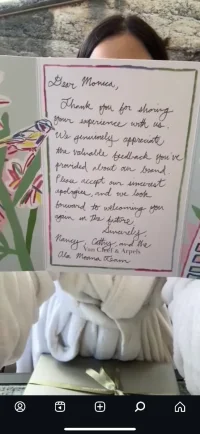 Dear Monica,
Thank you for sharing
your experience with us.
We genuinely appreciate
the valuable feedback you've
provided about our brand.
Please accept our sincerest
apologies, and we look
forward to welcoming you
again in the future.
Sincerely,
Nancy, Cathy, and the
Van Cleef & Arpels
Ala Moana Team